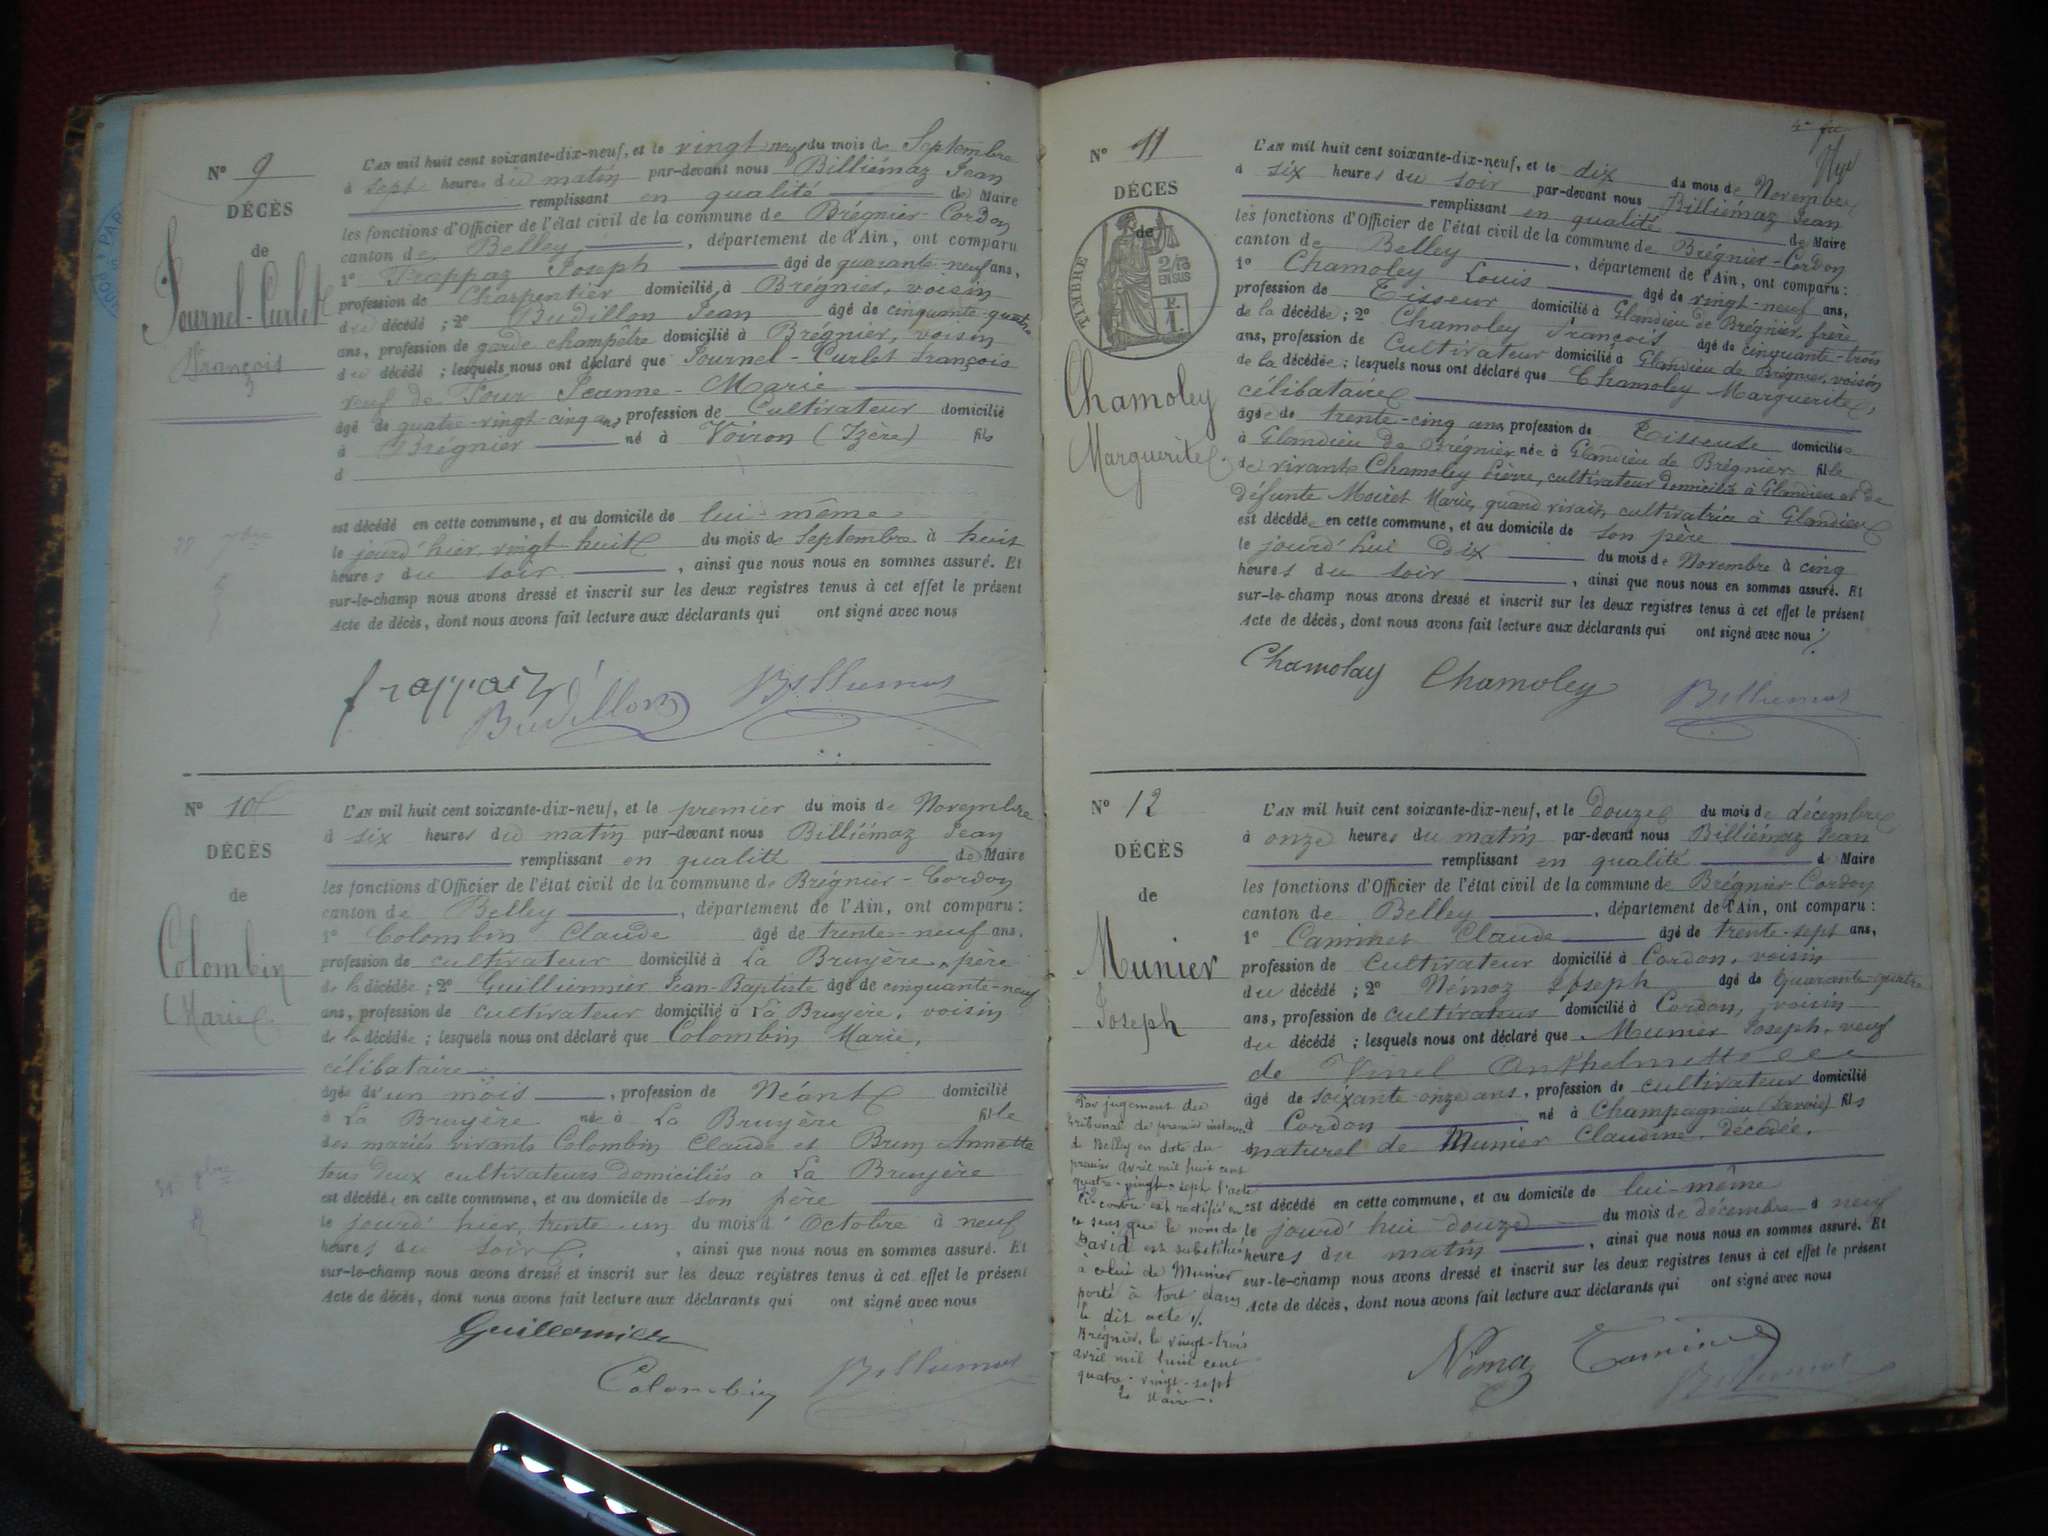 N° 9
DÉCÈS
de
Fournel-Curlet
François
L'AN mil huit cent soixante-dix-neuf, et le vingt neuf du mois de Septembre
à sept heures du matin par-devant nous Billiémaz Jean
remplissant en qualité de Maire
les fonctions d'Officier de l'état civil de la commune de Brégnier-Cordon
canton de Belley, département de l'Ain, ont comparu
1° Frappaz Joseph âgé de quarante-neuf ans,
profession de Charpentier domicilié à Brégnier, voisin
du décédé ; 2° Budillon Jean âgé de cinquante-quatre
ans, profession de garde champêtre domicilié à Brégnier, voisin
du décédé ; lesquels nous ont déclaré que Fournel-Curlet François
veuf de Four Jeanne-Marie
âgé de quatre-vingt-cinq ans, profession de Cultivateur domicilié
à Brégnier né à Voiron (Izère) fils
d
est décédé en cette commune, et au domicile de lui-même
le jourd'hier, vingt-huit du mois de Septembre à huit
heures du soir, ainsi que nous nous en sommes assuré. Et
sur-le-champ nous avons dressé et inscrit sur les deux registres tenus à cet effet le présent
Acte de décès, dont nous avons fait lecture aux déclarants qui ont signé avec nous
frappaz
Budillon
Billiemaz
N° 10
DÉCÈS
de
Colombin
Marie
L'AN mil huit cent soixante-dix-neuf, et le premier du mois de Novembre
à six heures du matin par-devant nous Billiémaz Jean
remplissant en qualité de Maire
les fonctions d'Officier de l'état civil de la commune de Brégnier-Cordon
canton de Belley, département de l'Ain, ont comparu :
1° Colombin Claude âgé de trente-neuf ans,
profession de cultivateur domicilié à La Bruyère, père
de la décédée ; 2° Guillermier Jean-Baptiste âgé de cinquante-neuf
ans, profession de cultivateur domicilié à La Bruyère, voisin
de la décédée ; lesquels nous ont déclaré que Colombin Marie,
célibataire
âgée d'un mois, profession de Néant domicilié
à La Bruyère née à La Bruyère fille
des mariés vivants Colombin Claude et Brun Annette
tous deux cultivateurs domiciliés a La Bruyère
est décédée en cette commune, et au domicile de son père
le jourd'hier, trente-un du mois d'Octobre à neuf
heures du soir, ainsi que nous nous en sommes assuré. Et
sur-le-champ nous avons dressé et inscrit sur les deux registres tenus à cet effet le présent
Acte de décès, dont nous avons fait lecture aux déclarants qui ont signé avec nous
Guillermier
Colombin
Billiemaz
N° 11
DÉCES
de
TIMBRE
2/10 EN SUS
F. 1.
Chamoley
Marguerite
L'AN mil huit cent soixante-dix-neuf, et le dix du mois de Novembre
à six heures du soir par-devant nous Billiémaz Jean
remplissant en qualité de Maire
les fonctions d'Officier de l'état civil de la commune de Brégnier-Cordon
canton de Belley, département de l'Ain, ont comparu :
1° Chamoley Louis âgé de vingt-neuf ans,
profession de Tisseur domicilié à Glandieu de Brégnier, frère
de la décédée ; 2° Chamoley François âgé de cinquante-trois
ans, profession de Cultivateur domicilié à Glandieu de Brégnier, voisin
de la décédée ; lesquels nous ont déclaré que Chamoley Marguerite,
célibataire
âgée de trente-cinq ans, profession de Tisseuse domiciliée
à Glandieu de Brégnier née à Glandieu de Brégnier fille
de vivant Chamoley Pierre, cultivateur domicilié à Glandieu et de
défunte Moiret Marie, quand vivait, cultivatrice à Glandieu
est décédée en cette commune, et au domicile de son père
le jourd'hui dix du mois de Novembre à cinq
heures du soir, ainsi que nous nous en sommes assuré. Et
sur-le-champ nous avons dressé et inscrit sur les deux registres tenus à cet effet le présent
Acte de décès, dont nous avons fait lecture aux déclarants qui ont signé avec nous
Chamolay
Chamoley
Billiemaz
N° 12
DÉCÈS
de
Munier
Joseph
L'AN mil huit cent soixante-dix-neuf, et le douze du mois de décembre
à onze heures du matin par-devant nous Billiémaz Jean
remplissant en qualité de Maire
les fonctions d'Officier de l'état civil de la commune de Brégnier-Cordon
canton de Belley, département de l'Ain, ont comparu :
1° Caminet Claude âgé de trente-sept ans,
profession de cultivateur domicilié à Cordon, voisin
du décédé ; 2° Némoz Joseph âgé de quarante-quatre
ans, profession de cultivateur domicilié à Cordon, voisin
du décédé ; lesquels nous ont déclaré que Munier Joseph, veuf
de Vinel Anthelmette
âgé de soixante-onze ans, profession de cultivateur domicilié
à Cordon né à Champagneu (Savoie) fils
naturel de Munier Claudine, décédée,
est décédé en cette commune, et au domicile de lui-même
le jourd'hui douze du mois de décembre à neuf
heures du matin, ainsi que nous nous en sommes assuré. Et
sur-le-champ nous avons dressé et inscrit sur les deux registres tenus à cet effet le présent
Acte de décès, dont nous avons fait lecture aux déclarants qui ont signé avec nous
Par jugement du
tribunal de premier instance
de Belley en date du
premier avril mil huit cent
quatre-vingt-sept l'acte
ci-contre est rectifié en
ce sens que le nom de
David est substitué
à celui de Munier
porté à tort dans
le dit acte ./.
Brégnier, le vingt-trois
avril mil huit cent
quatre-vingt-sept
le Maire.
Némoz
Caminet
Billiemaz